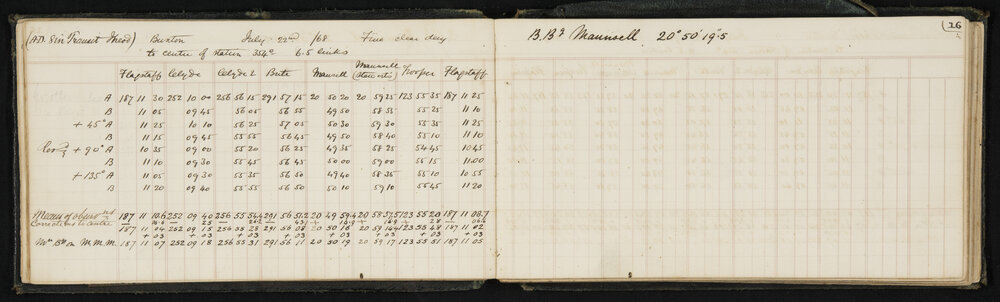 (A.D. 8in Transit Theod) Buxton July 22nd /68 Fine clear day
to centre of station 354° 6.5 links
Flagstaff Clyde Clyde 2 Brite Maunsell Maunsell Hooper Flagstaff
A 187 11 30 252 10 00 256 56 15 291 57 15 20 50 20 20 59 25 123 55 35 187 11 25
B 11 05 09 45 56 05 56 55 49 50 58 55 55 25 11 10
+ 45° A 11 25 10 10 56 25 57 05 50 30 59 30 55 35 11 25
B 11 15 09 45 55 55 56 45 49 50 58 40 55 10 11 10
+ 90° A 10 35 09 00 55 20 56 25 49 35 58 25 54 45 10 45
B 11 10 09 30 55 45 56 45 50 00 59 00 55 15 11 00
+ 135° A 11 05 09 30 55 35 56 50 49 40 58 35 55 10 10 55
B 11 20 09 40 55 55 56 50 50 10 59 10 55 45 11 20
Means of observns 187 11 10.6 252 09 40 256 55 54.4 291 56 51.2 20 49 59.4 20 58 57.5 123 55 20 187 11 08.7
Corrections to centre
187 11 04 252 09 15 256 55 28 291 56 08 20 50 16 20 59 14 123 55 48 187 11 02
+ 03 + 03 + 03 + 03 + 03 + 03 + 03 + 03
Mn Bg on M.M.M. 187 11 07 252 09 18 256 55 31 291 56 11 20 50 19 20 59 17 123 55 51 187 11 05
16
B.Bg Maunsell 20° 50' 19".5